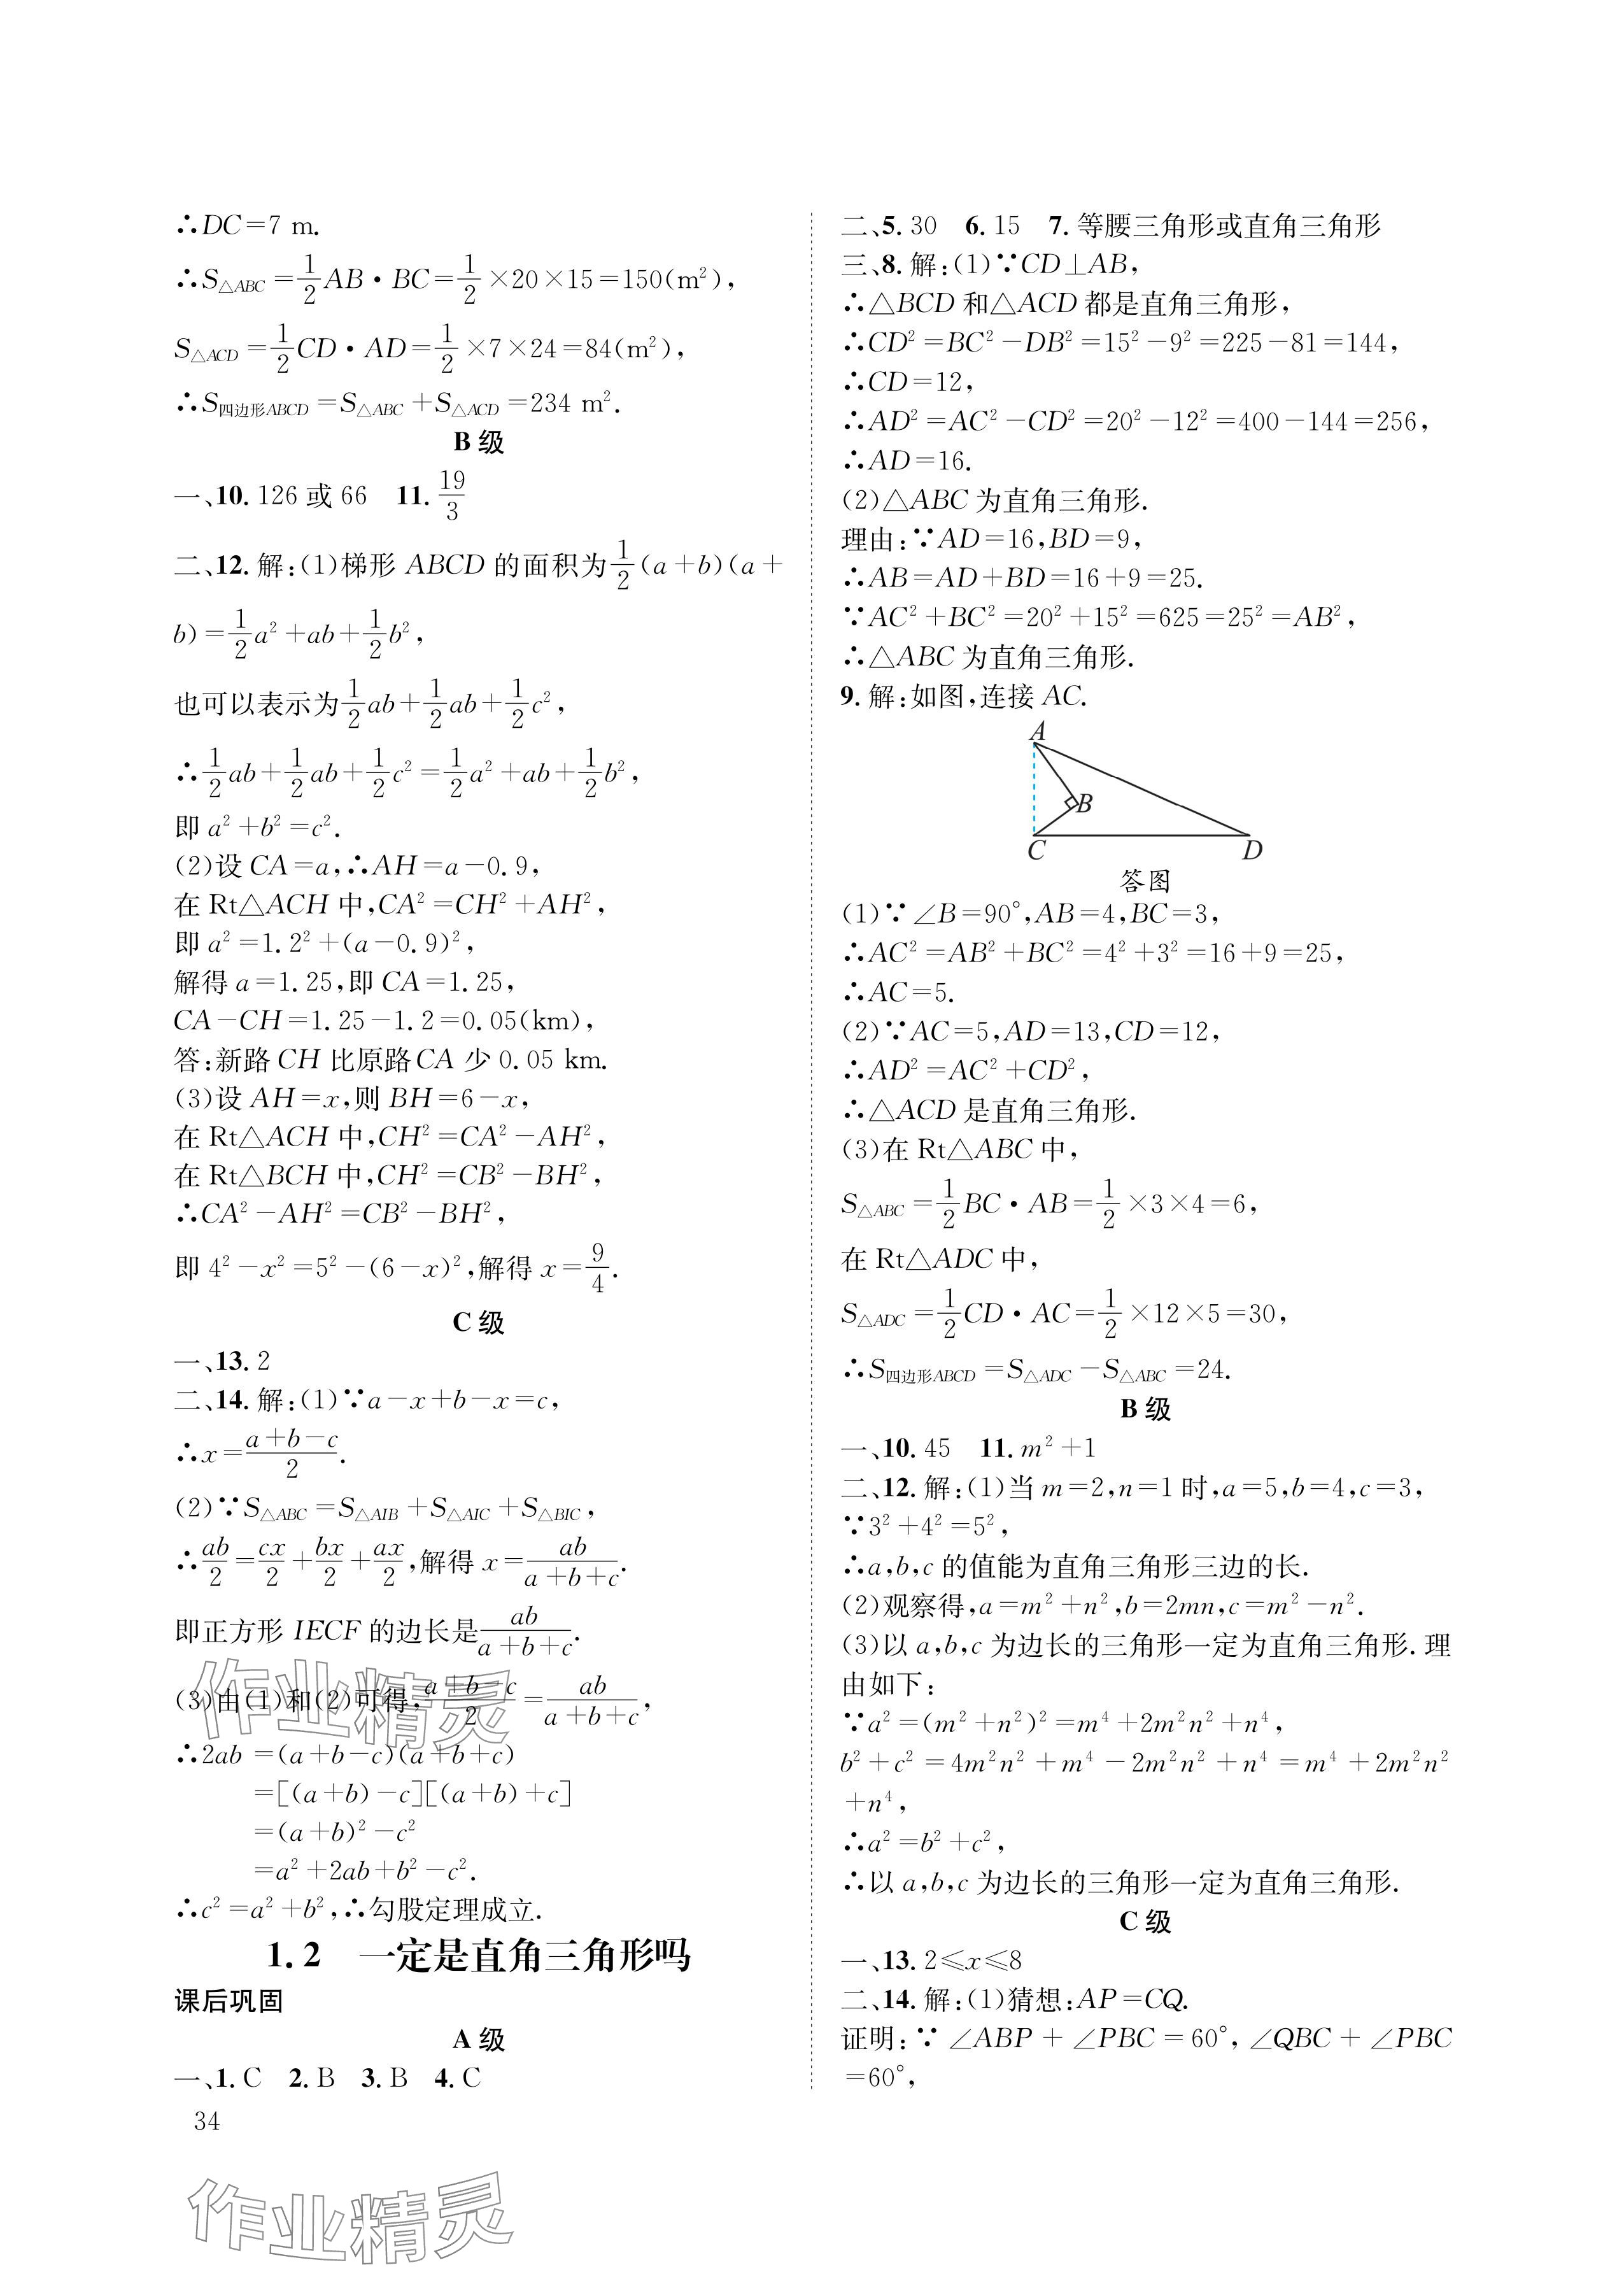 ∴DC=7 m.
∴S△ABC=1/2AB·BC=1/2×20×15=150(m²),
S△ACD=1/2CD·AD=1/2×7×24=84(m²),
∴S四边形ABCD=S△ABC+S△ACD=234 m².
B级
一、10. 126或66 11. 19/3
二、12. 解:(1)梯形ABCD的面积为1/2(a+b)(a+
b)=1/2a²+ab+1/2b²,
也可以表示为1/2ab+1/2ab+1/2c²,
∴1/2ab+1/2ab+1/2c²=1/2a²+ab+1/2b²,
即a²+b²=c².
(2)设CA=a,∴AH=a-0.9,
在Rt△ACH中,CA²=CH²+AH²,
即a²=1.2²+(a-0.9)²,
解得a=1.25,即CA=1.25,
CA-CH=1.25-1.2=0.05(km),
答:新路CH比原路CA少0.05 km.
(3)设AH=x,则BH=6-x,
在Rt△ACH中,CH²=CA²-AH²,
在Rt△BCH中,CH²=CB²-BH²,
∴CA²-AH²=CB²-BH²,
即4²-x²=5²-(6-x)²,解得x=9/4.
C级
一、13. 2
二、14. 解:(1)∵a-x+b-x=c,
∴x=(a+b-c)/2.
(2)∵S△ABC=S△AIB+S△AIC+S△BIC,
∴ab/2=cx/2+bx/2+ax/2,解得x=ab/(a+b+c).
即正方形IECF的边长是ab/(a+b+c).
(3)由(1)和(2)可得,(a+b-c)/2=ab/(a+b+c),
∴2ab=(a+b-c)(a+b+c)
=[(a+b)-c][(a+b)+c]
=(a+b)²-c²
=a²+2ab+b²-c².
∴c²=a²+b²,∴勾股定理成立.
1.2 一定是直角三角形吗
课后巩固
A级
一、1. C 2. B 3. B 4. C
34
二、5. 30 6. 15 7. 等腰三角形或直角三角形
三、8. 解:(1)∵CD⊥AB,
∴△BCD和△ACD都是直角三角形,
∴CD²=BC²-DB²=15²-9²=225-81=144,
∴CD=12,
∴AD²=AC²-CD²=20²-12²=400-144=256,
∴AD=16.
(2)△ABC为直角三角形.
理由:∵AD=16,BD=9,
∴AB=AD+BD=16+9=25.
∵AC²+BC²=20²+15²=625=25²=AB²,
∴△ABC为直角三角形.
9. 解:如图,连接AC.
A
B
C D
答图
(1)∵∠B=90°,AB=4,BC=3,
∴AC²=AB²+BC²=4²+3²=16+9=25,
∴AC=5.
(2)∵AC=5,AD=13,CD=12,
∴AD²=AC²+CD²,
∴△ACD是直角三角形.
(3)在Rt△ABC中,
S△ABC=1/2BC·AB=1/2×3×4=6,
在Rt△ADC中,
S△ADC=1/2CD·AC=1/2×12×5=30,
∴S四边形ABCD=S△ADC-S△ABC=24.
B级
一、10. 45 11. m²+1
二、12. 解:(1)当m=2,n=1时,a=5,b=4,c=3,
∵3²+4²=5²,
∴a,b,c的值能为直角三角形三边的长.
(2)观察得,a=m²+n²,b=2mn,c=m²-n².
(3)以a,b,c为边长的三角形一定为直角三角形.理
由如下:
∵a²=(m²+n²)²=m⁴+2m²n²+n⁴,
b²+c²=4m²n²+m⁴-2m²n²+n⁴=m⁴+2m²n²
+n⁴,
∴a²=b²+c²,
∴以a,b,c为边长的三角形一定为直角三角形.
C级
一、13. 2≤x≤8
二、14. 解:(1)猜想:AP=CQ.
证明:∵∠ABP+∠PBC=60°,∠QBC+∠PBC
=60°,
作业精灵
作业精灵